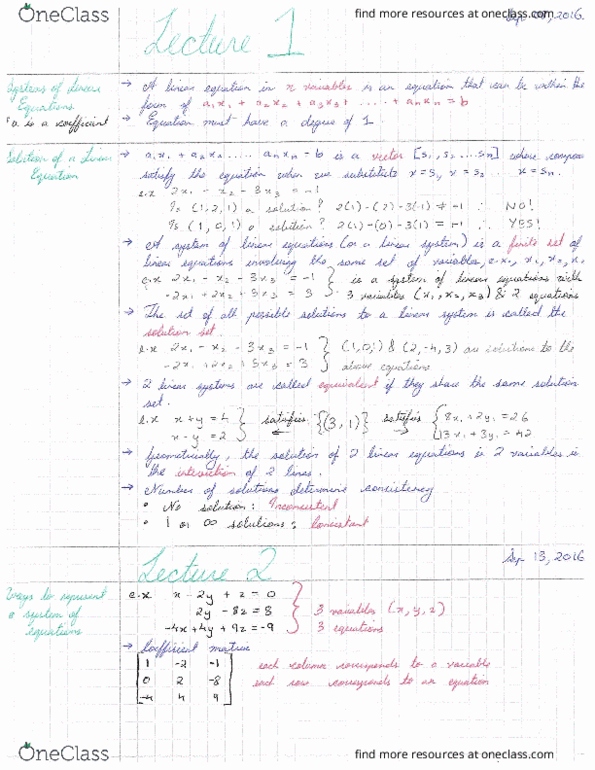 OneClass
find more resources at oneclass.com
2016.
Lecture 1
Systems of Linear Equations
*a is a coefficient
→ A linear equation in n variables is an equation that can be written in the
form of a₁x₁ + a₂x₂ + a₃x₃ + ..... + aₙxₙ = b
→ Equation must have a degree of 1
Solution of a Linear Equation
→ a₁x₁ + a₂x₂ ..... aₙxₙ = b is a vector [s₁, s₂ ... sₙ] whose
satisfy the equation when we substitute x = s₁, x = s₂ ... x = sₙ.
e.x 2x₁ - x₂ - 3x₃ = -1
Is (1, 2, 1) a solution? 2(1) - (2) - 3(1) ≠ -1 ∴ NO!
Is (1, 0, 1) a solution? 2(1) - (0) - 3(1) = -1 ∴ YES!
→ A system of linear equations (or a linear system) is a finite set of
linear equations involving the same set of variables, e.x., x₁, x₂, x₃
e.x 2x₁ - x₂ - 3x₃ = -1 } is a system of linear equations with
-2x₁ + 2x₂ + 5x₃ = 3 } 3 variables (x₁, x₂, x₃) & 2 equations
→ The set of all possible solutions to a linear system is called the
solution set.
e.x 2x₁ - x₂ - 3x₃ = -1 } (1, 0, 1) & (2, -4, 3) are solutions to the
-2x₁ + 2x₂ + 5x₃ = 3 } above equations
→ 2 linear systems are called equivalent if they share the same solution
set.
e.x x + y = 4 } satisfies {(3, 1)} satisfies { 8x₁ + 2y₁ = 26
x - y = 2 } ← → { 13x₁ + 3y₁ = 42
→ Geometrically, the solution of 2 linear equations in 2 variables is
the intersection of 2 lines.
→ Number of solutions determine consistency
• No solution: Inconsistent
• 1 or ∞ solutions: Consistent
Lecture 2
Sep 13, 2016
Ways to represent a system of equations
e.x x - 2y + z = 0
2y - 8z = 8 } 3 variables (x, y, z)
-4x + 4y + 9z = -9 3 equations
→ Coefficient matrix
[1 -2 -1] each column corresponds to a variable
[0 2 -8] each row corresponds to an equation
[-4 4 9]
OneClass
find more resources at oneclass.com